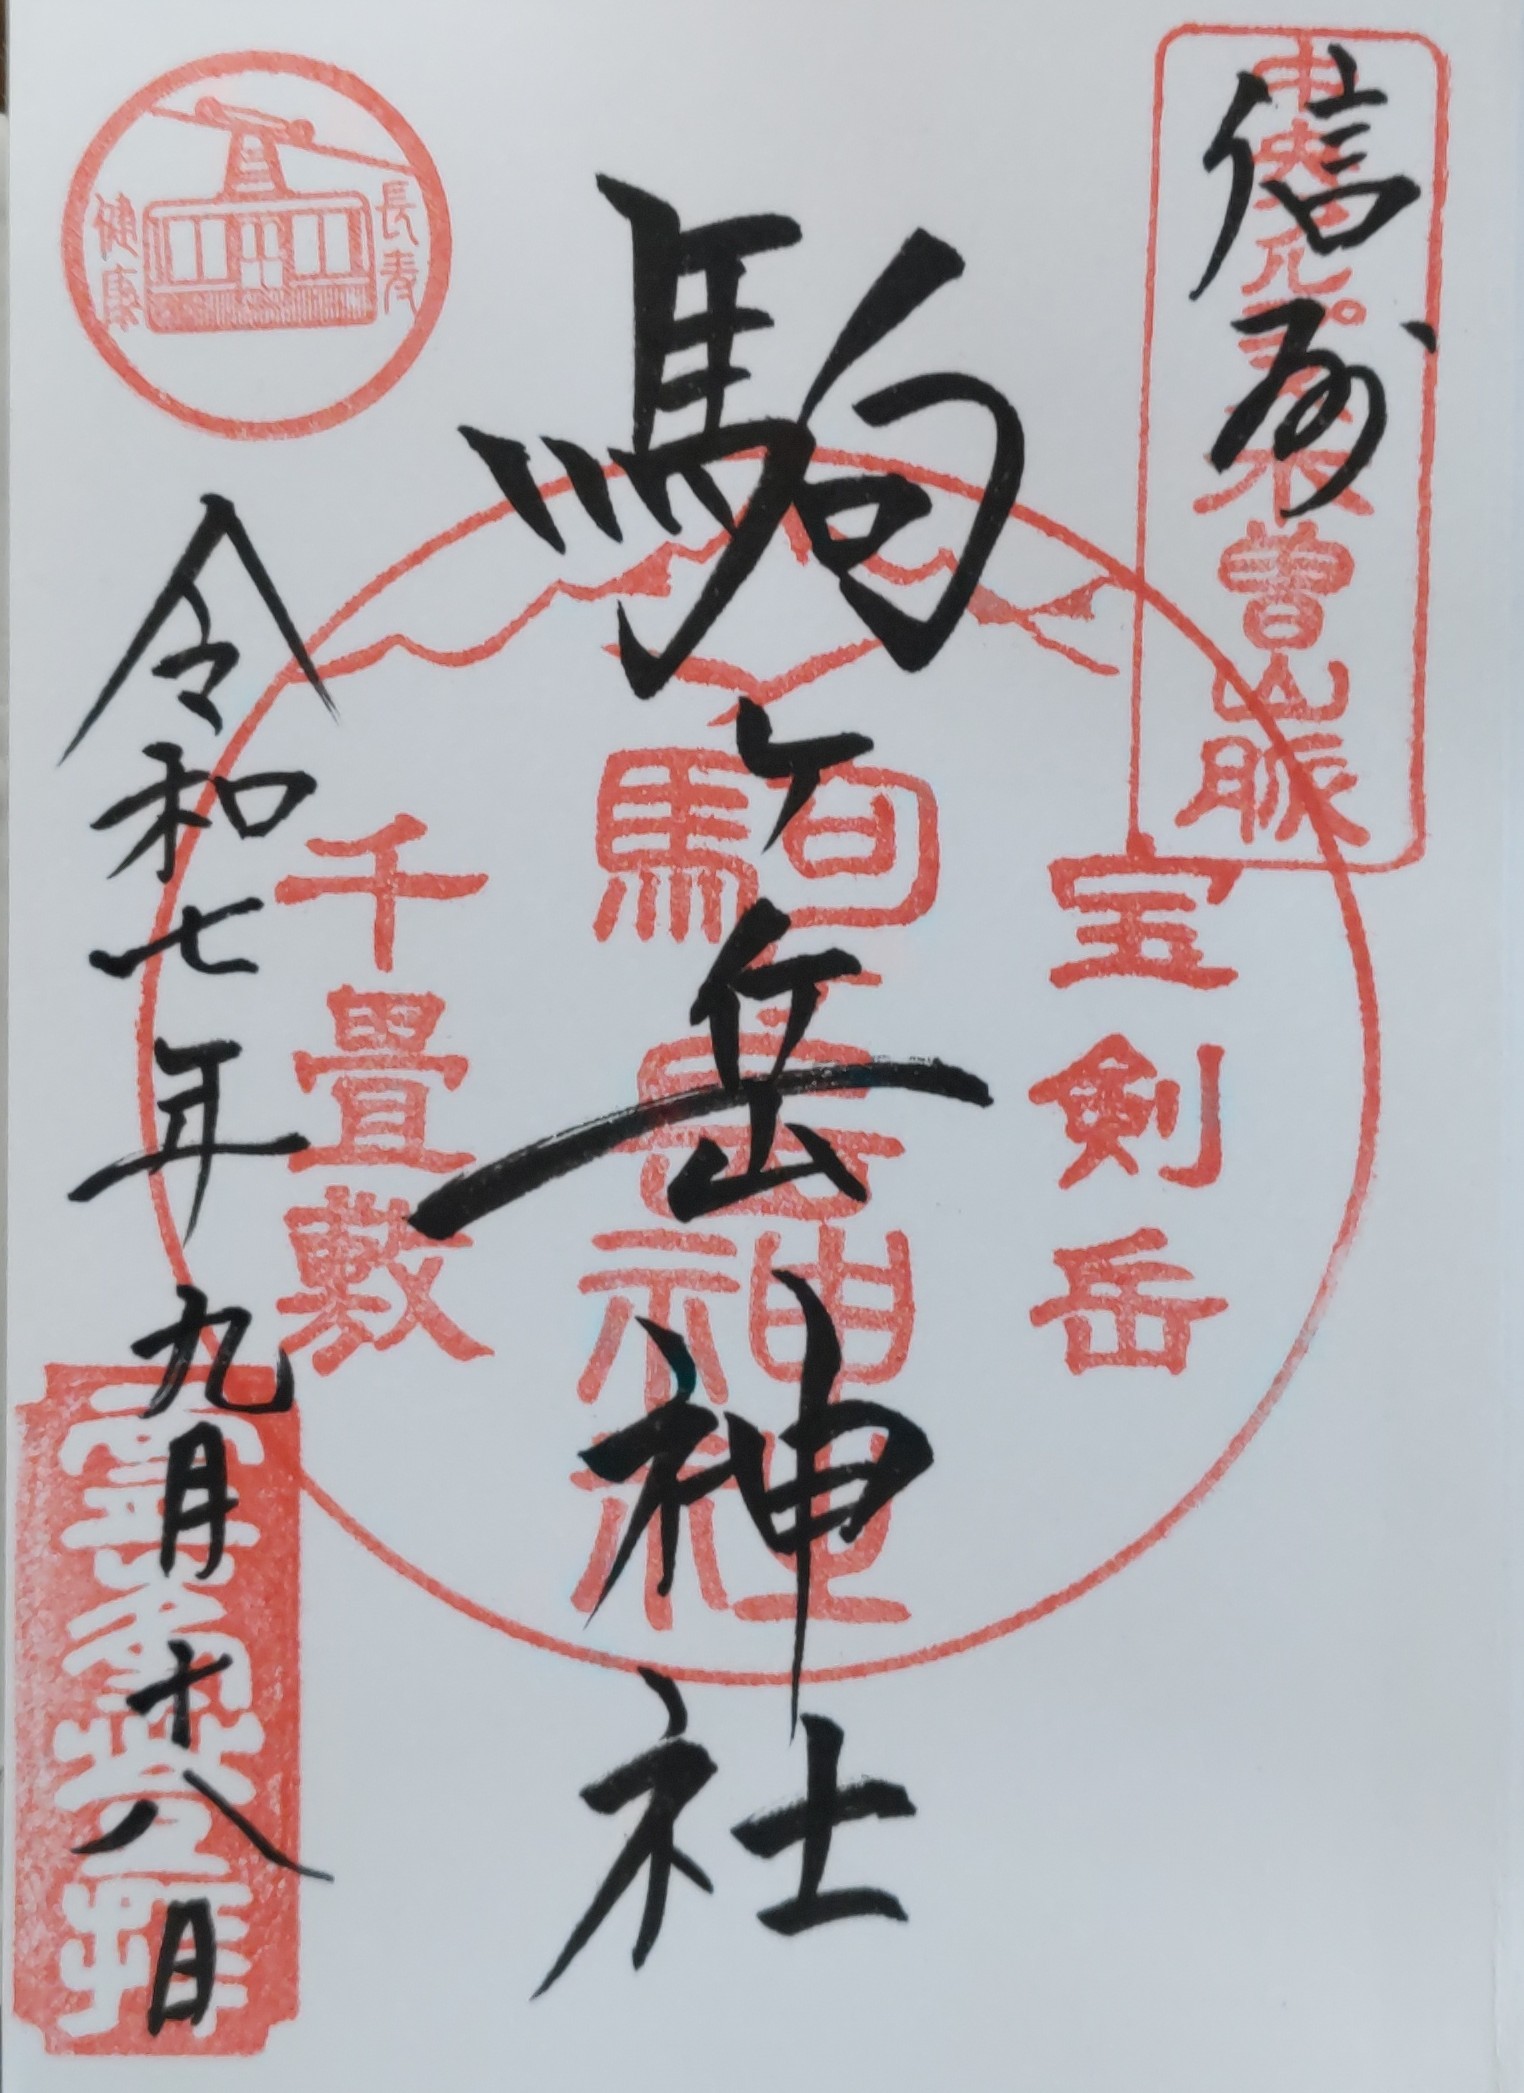 信州
中央アルプス木曽山脈
宝剣岳
駒ヶ岳神社
駒岳神社
千畳敷
長寿
健康
令和七年九月十八日